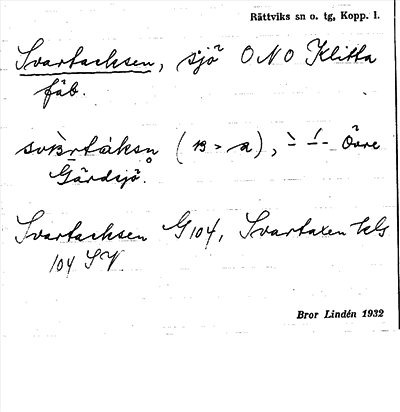 Rättviks sn o. tg, Kopp. l.
Svartacksen, sjö ONO Klitta
fäb.
(B > a), Övre
Gärdsjö.
Svartacksen G104, Svartaxen kls
104 SV.
Bror Lindén 1932